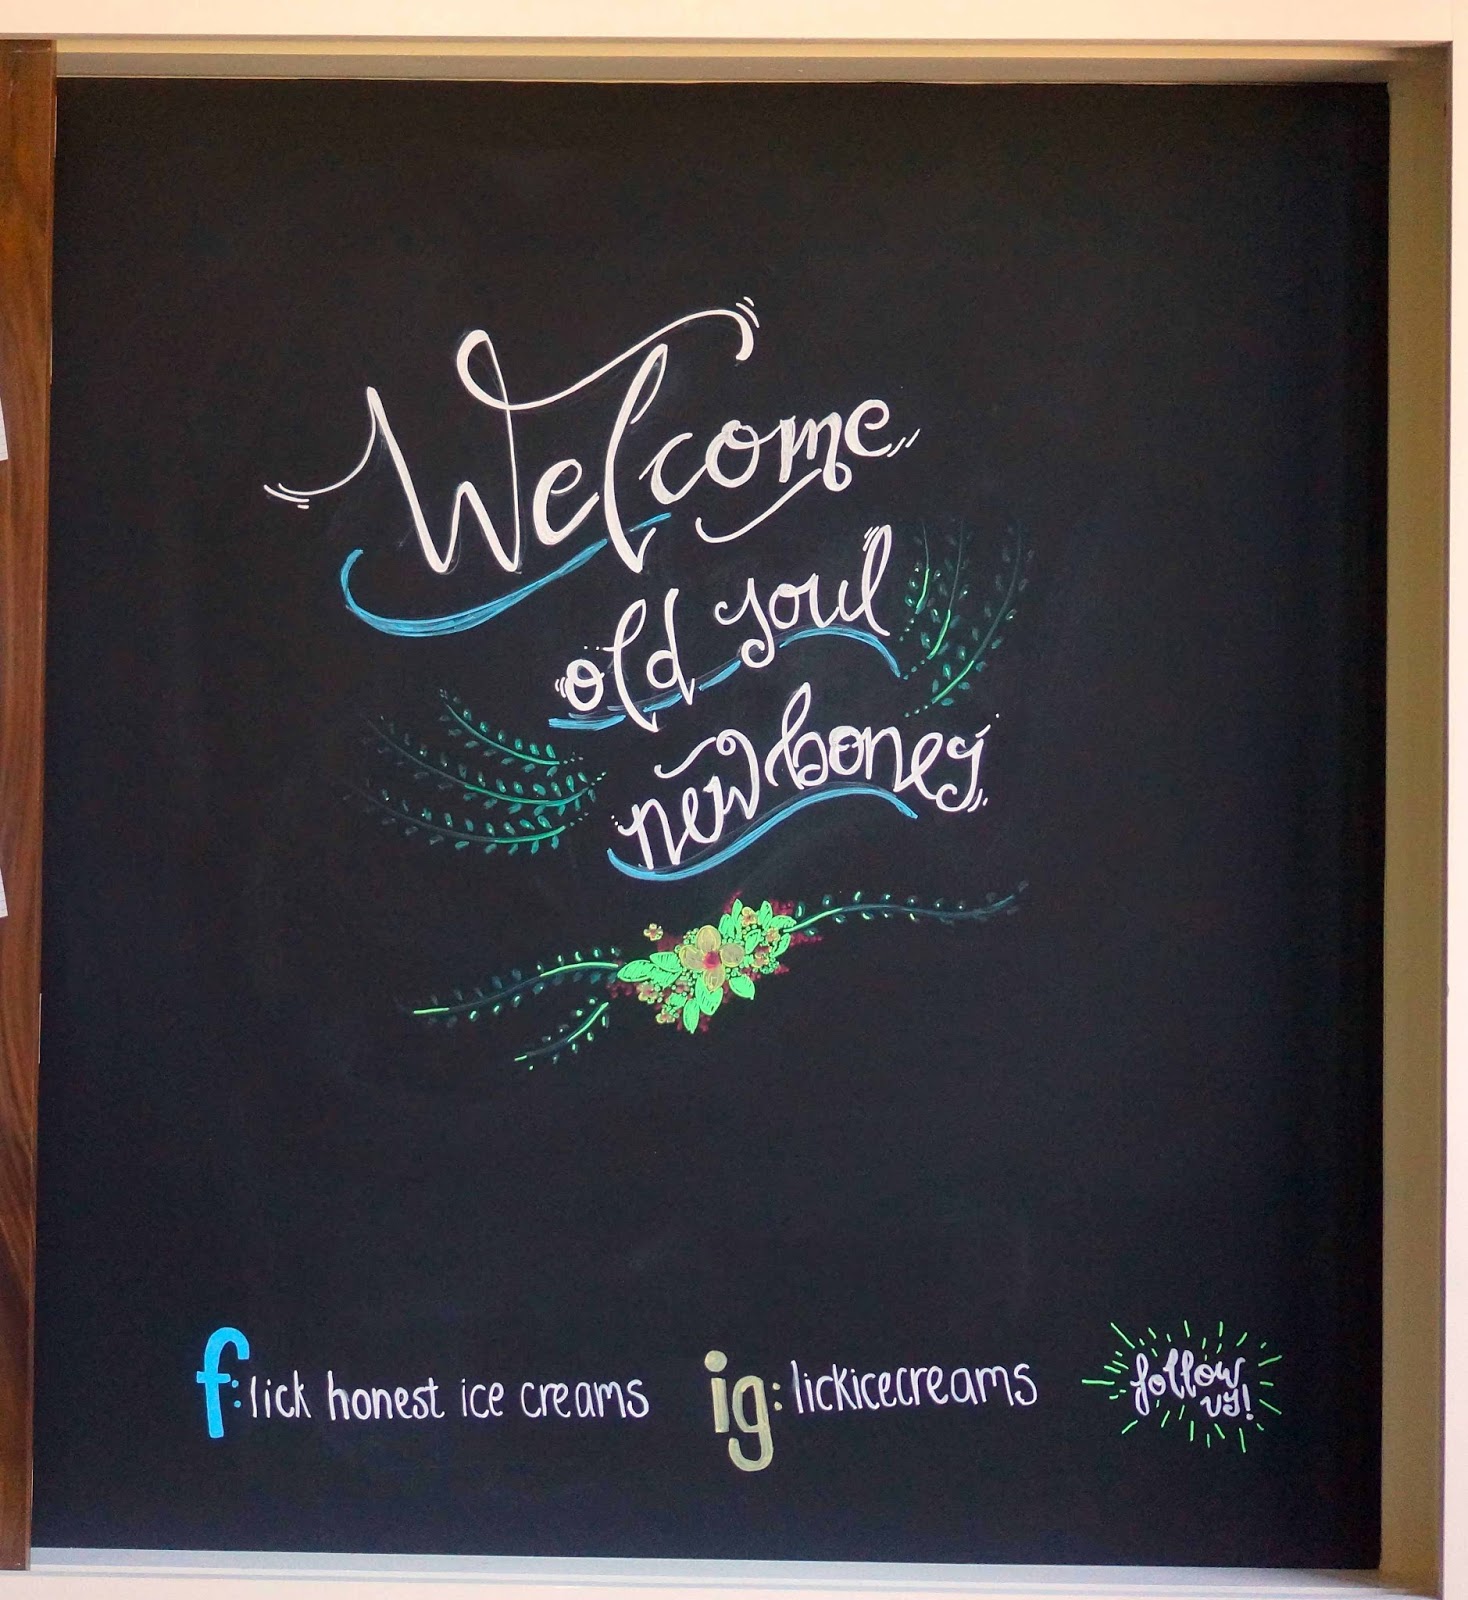 Welcome
old soul
new honey
f: lick honest ice creams
ig: lickicecreams
follow
us!